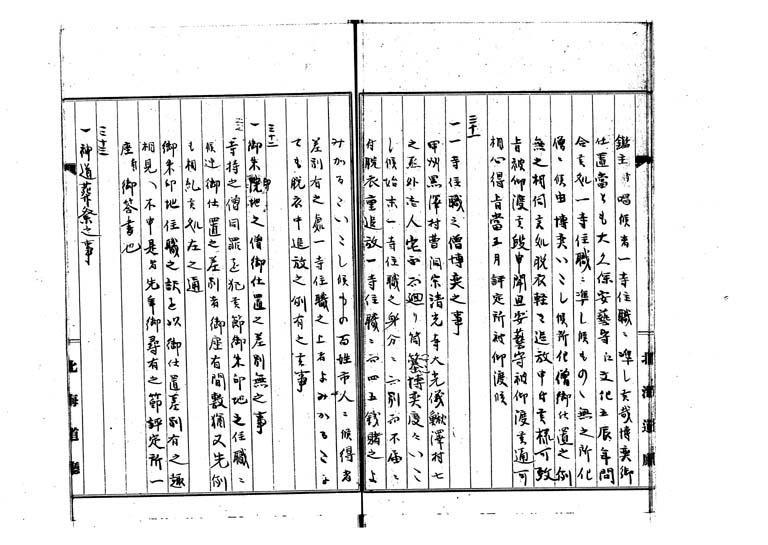 鑑主与唱候者一寺住職ニ準し哉博奕御
仕置當りも大久保安藝守江文化五辰年問
合之処一寺住職ニ準し候ものニ無之所化
僧ニ候由博奕いたし候所化僧御仕置之例
無之相伺之処脱衣軽き追放申付候様可致
旨被仰渡之段申聞且安藝守被仰渡之通可
相心得旨當五月評定所被仰渡候
三十一
一一寺住職之僧博奕之事
甲州黒澤村曹洞宗清光寺大光儀鰍澤村七
之丞外壱人宅ニ而廻り筒博奕度々いた
し候始末一寺住職之身分ニ而別而不届ニ
付脱衣重追放一寺住職ニ而四五銭賭之よ
みかるたいたし候もの百姓市人ニ候得者
差別有之處一寺住職之上者よみかるたに
ても脱衣申追放之例有之事
三十二
一御朱印地之僧御仕置之差別無之事
寺持之僧同罪を犯候節御朱印地之住職ニ
候迚御仕置之差別者御座有間敷猶又先例
も相糺候処左之通
御朱印地住職之訳を以御仕置差別有之趣
相見へ不申是者先年御尋有之節評定所一
座御答書也
三十三
一神道葬祭之事
北海道廳
北海道廳